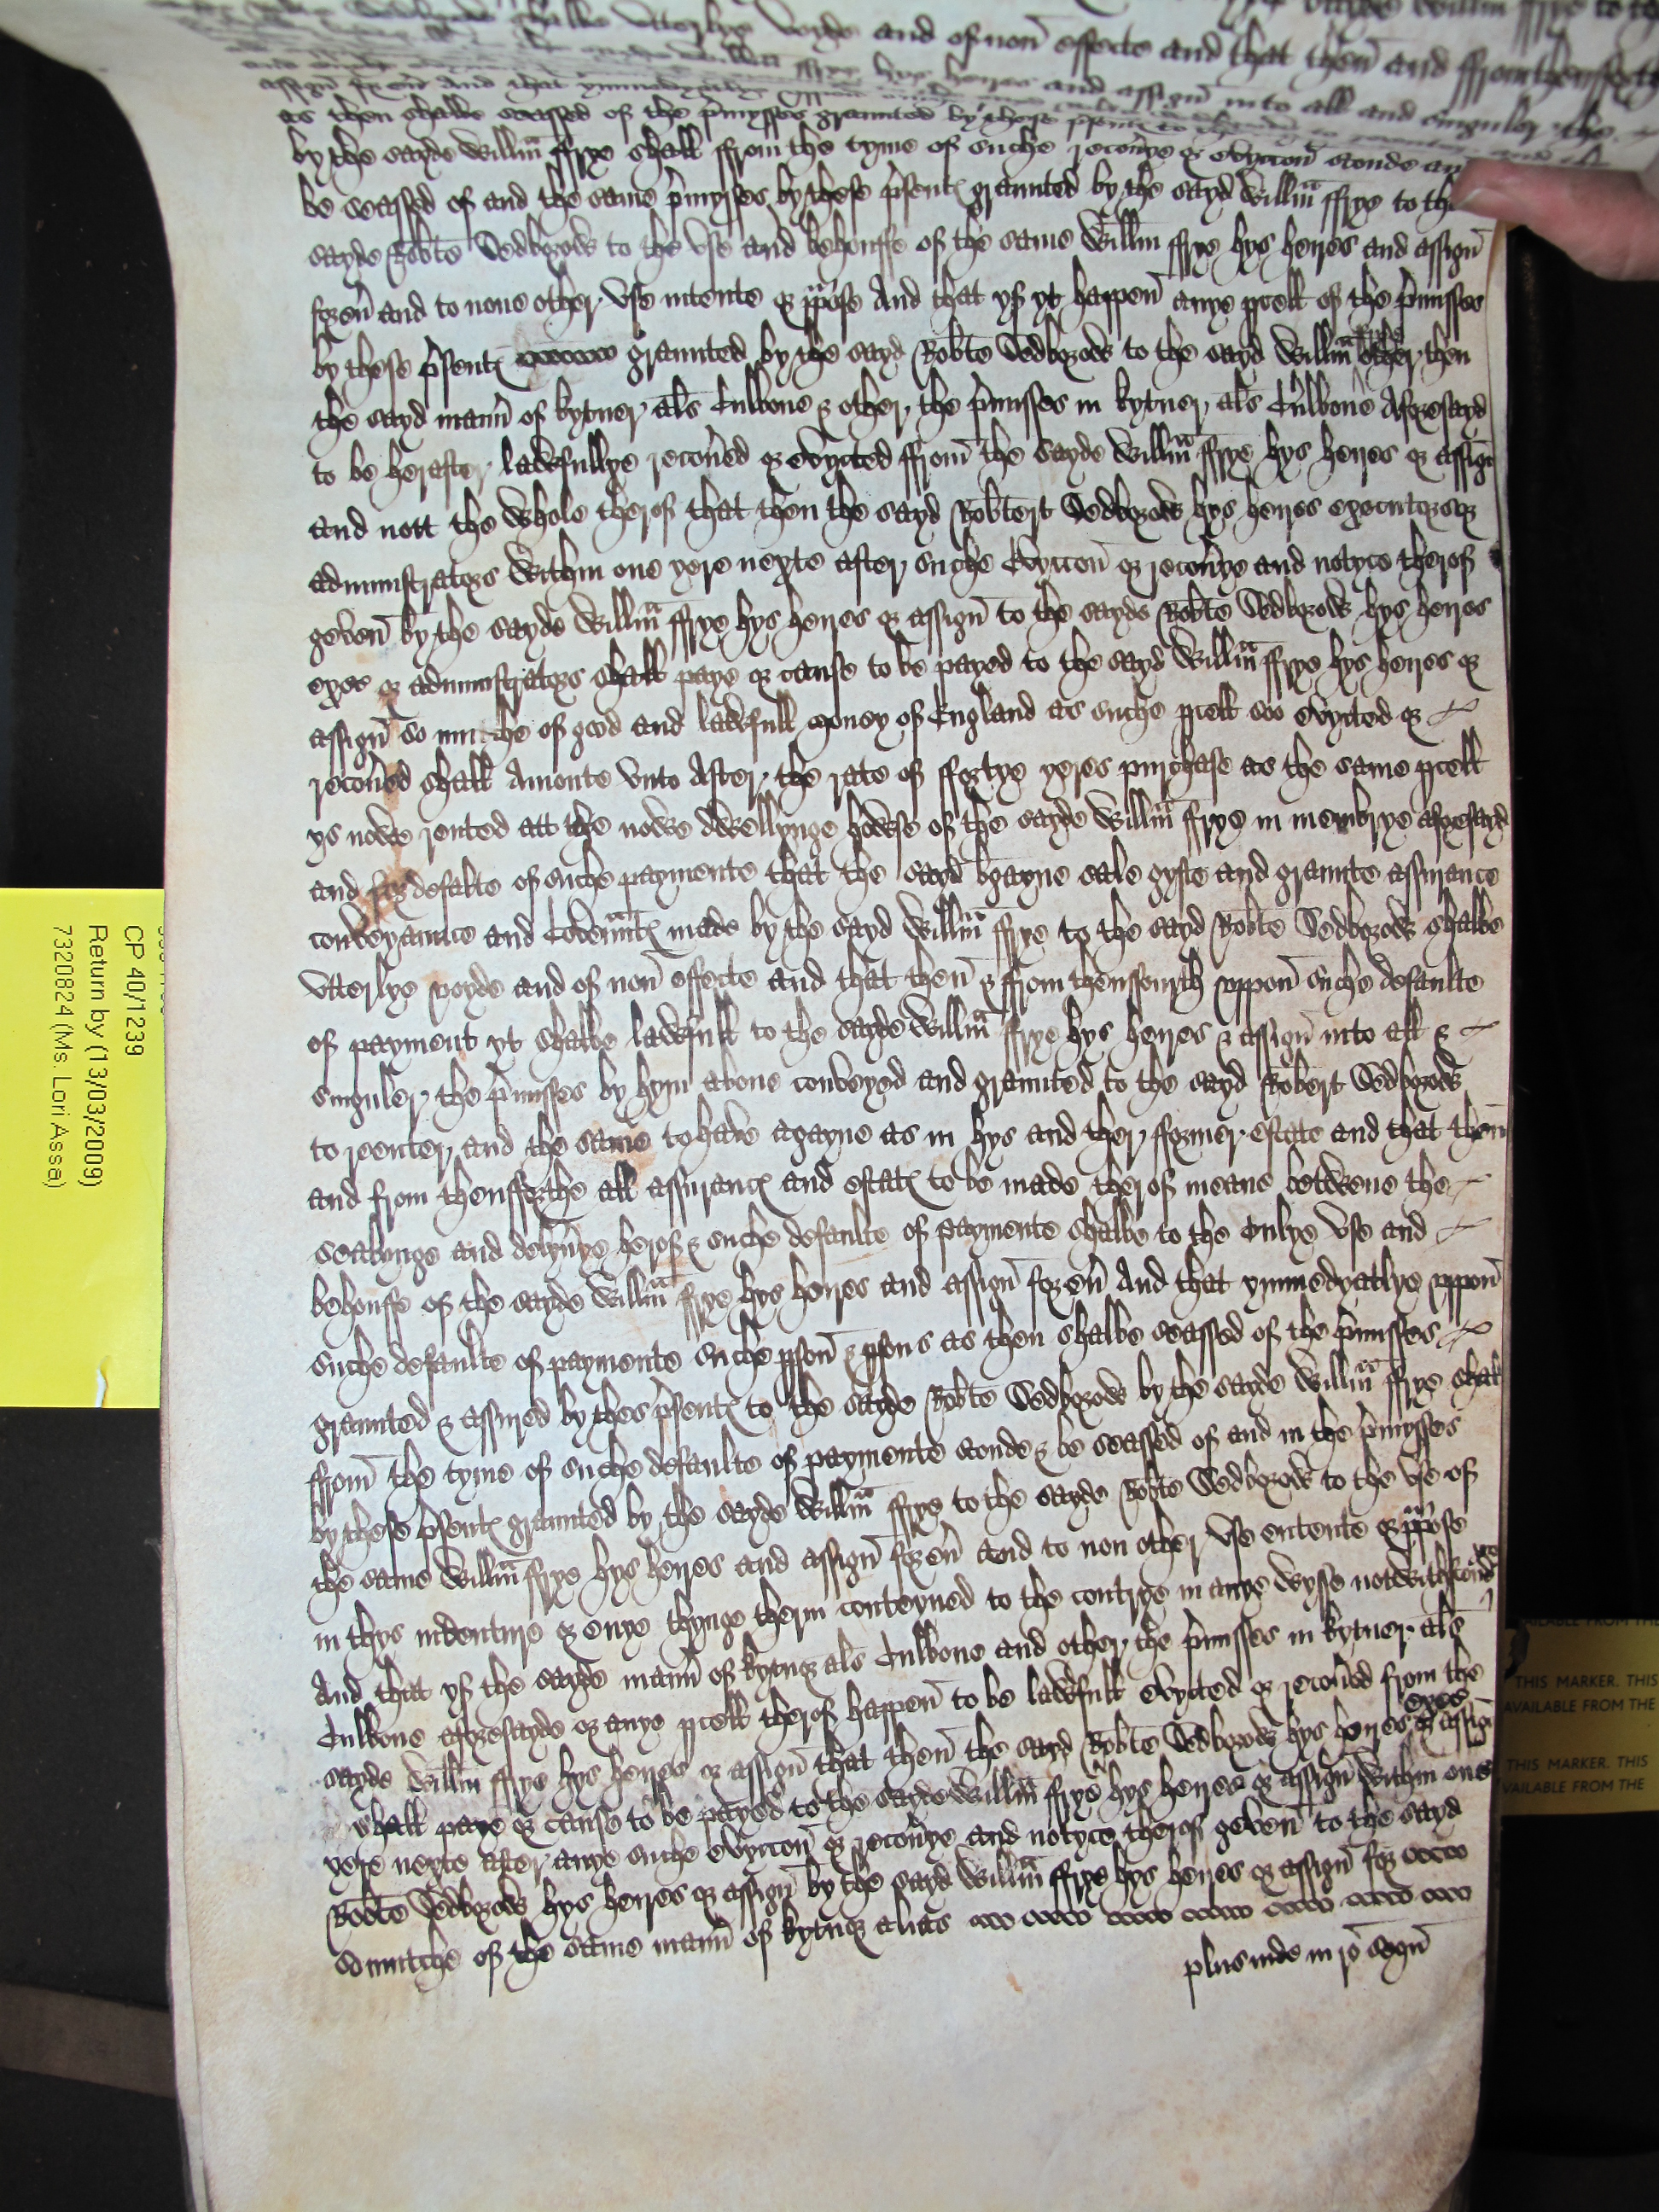 utterlye voyde and of non effecte and that then and ffromthensforth
willm ffrye hys heires and assign into all and singuler the
assign forev And that ymmedyatlye
as then shalbe seassed of the pmysses graunted by these psent to the
by the sayde Willm ffrye shall ffrom the tyme of suche recovye or evyccon stonde an
be seassed of and the same pmysses by these psent graunted by the sayd Willm ffrye to the
sayde Robte Sedborow to the use and behouffe of the same Willm ffrye hys heires and assign
forev and to none other use intente or ppose And that yf yt happen anye pcell of the pmisses
by these psent graunted by the sayd Robte Sedborow to the sayd Willm ffrye other then
the sayd mann of kytner als Culbone & other the pmisses in kytner als Culbone Aforesayd
to be herafter lawfullye recoved or evycted ffrom the sayde Willm ffrye hys heires or assign
and nott the whole therof that then the sayd Robtert Sedborow hys heires executors or
administrators within one yere nexte after suche Evyccon or recovye and notyce therof
geven by the sayde Willm ffrye hys heires or assign to the sayde Robte Sedborow hys heires
exec or administrators shall paye or cause to be payed to the sayd Willm ffrye hys heires or
assign so mutche of good and lawfull money of England as suche pcell soo evycted or
recoved shall Amonte unto After the rate of ffortye yeres purchase as the same pcell
ys nowe rented att the nowe dwellynge howse of the sayde Willm ffrye in membrye aforesayd
and for defalte of suche paymente that the sayd bgayne sale gyfte and graunte assurance
conveyaunce and Covennt made by the sayd Willm ffrye to the sayd Robte Sedborow shalbe
utterlye voyde and of non effecte and that then & ffrom thensfourth uppon suche defaulte
of payment yt shalbe lawfull to the sayde Willm ffrye hys heires & assign into all &
singuler the pmisses by hym above conveyed and graunted to the sayd Robert Sedborow
to reenter and the same to have agayne as in hys and ther fformer estate and that then
and from thensfforthe all assuranc and estat to be made therof meane betwene the
sealynge and delyvye herof & suche defaulte of paymente shalbe to the Onlye use and
behouffe of the sayde Willm ffrye hys heires and assign forev And that ymmedyatlye uppon
suche defaulte of paymente suche pson & psons as then shalbe seassed of the pmisses
graunted & assured by thes psent to the sayde Robte Sedborow by the sayde Willm ffrye shall
ffrom the tyme of suche defaulte of paymente stonde & be seassed of and in the pmysses
by these psent graunted by the sayde Willm ffrye to the sayde Robte Sedborow to the use of
the same Willm ffrye hys heires and assign forev and to non other use entente or ppose
in thys indenture or enye thynge therin conteyned to the contrye in anye wysse notwithstond
And that yf the sayde mann of kytnor als Culbone and other the pmisses in kytner als
Culbone aforesayde or anye pcell therof happen to be lawfull evycted or recoved from the
sayde Willm ffrye hys heires or assign that then the sayd Robte Sedborow hys heires exec or assign
shall paye or cause to be payed to the sayde Willm ffrye hys heires or assign within one
yere nexte after anye suche evyccon or recovye and notyce therof geven to the sayd
Robte Sedborow hys heires or assign by the sayd Willm ffrye hys heires or assign for
so mutche of the same mann of kytnor alias
plus inde in ro segn
CP 40/1239
Return by (13/03/2009)
7320824 (Ms. Lori Assa)
AVAILABLE FROM THE
THIS MARKER. THIS
AVAILABLE FROM THE
THIS MARKER. THIS
AVAILABLE FROM THE